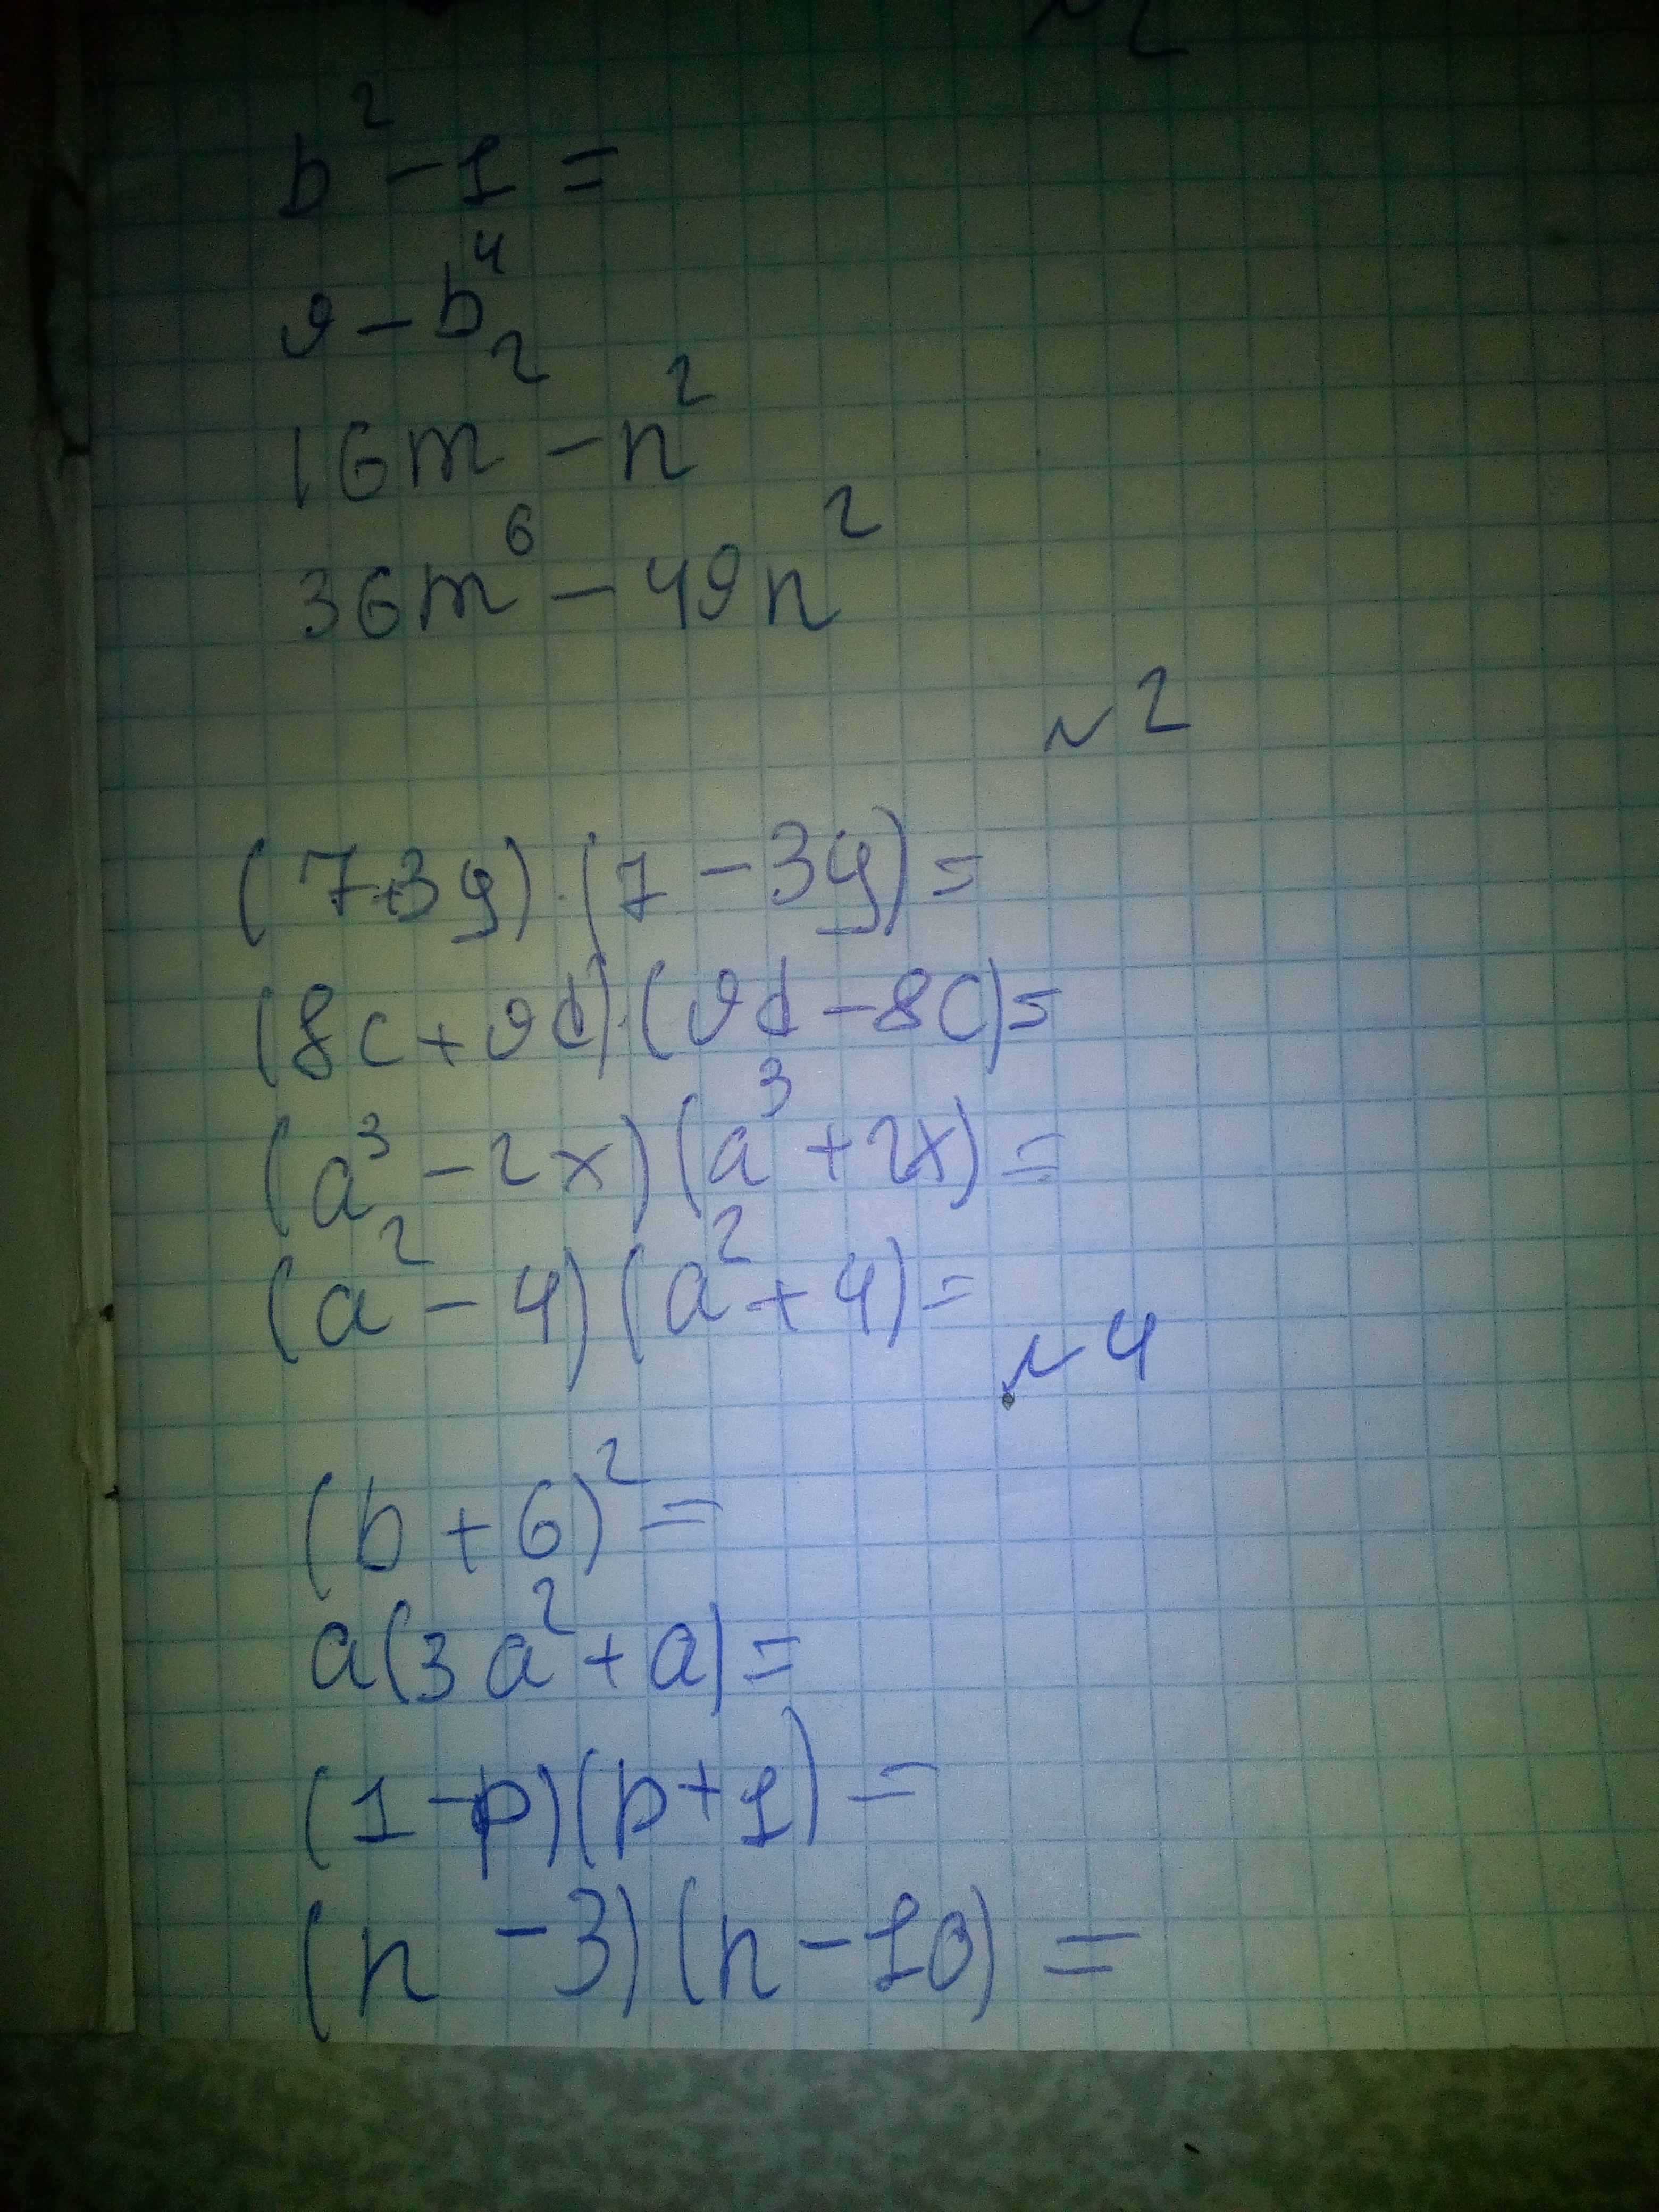 N2
b² - 1 =
9 - b⁴
16m² - n²
36m⁶ - 49n²
N2
(7+3y)·(7-3y)=
(8c+9d)·(9d-8c)=
(a³-2x)(a³+2x)=
(a²-4)(a²+4)=
N4
(b+6)²=
a(3a²+a)=
(1-p)(p+1)=
(n-3)(n-10)=